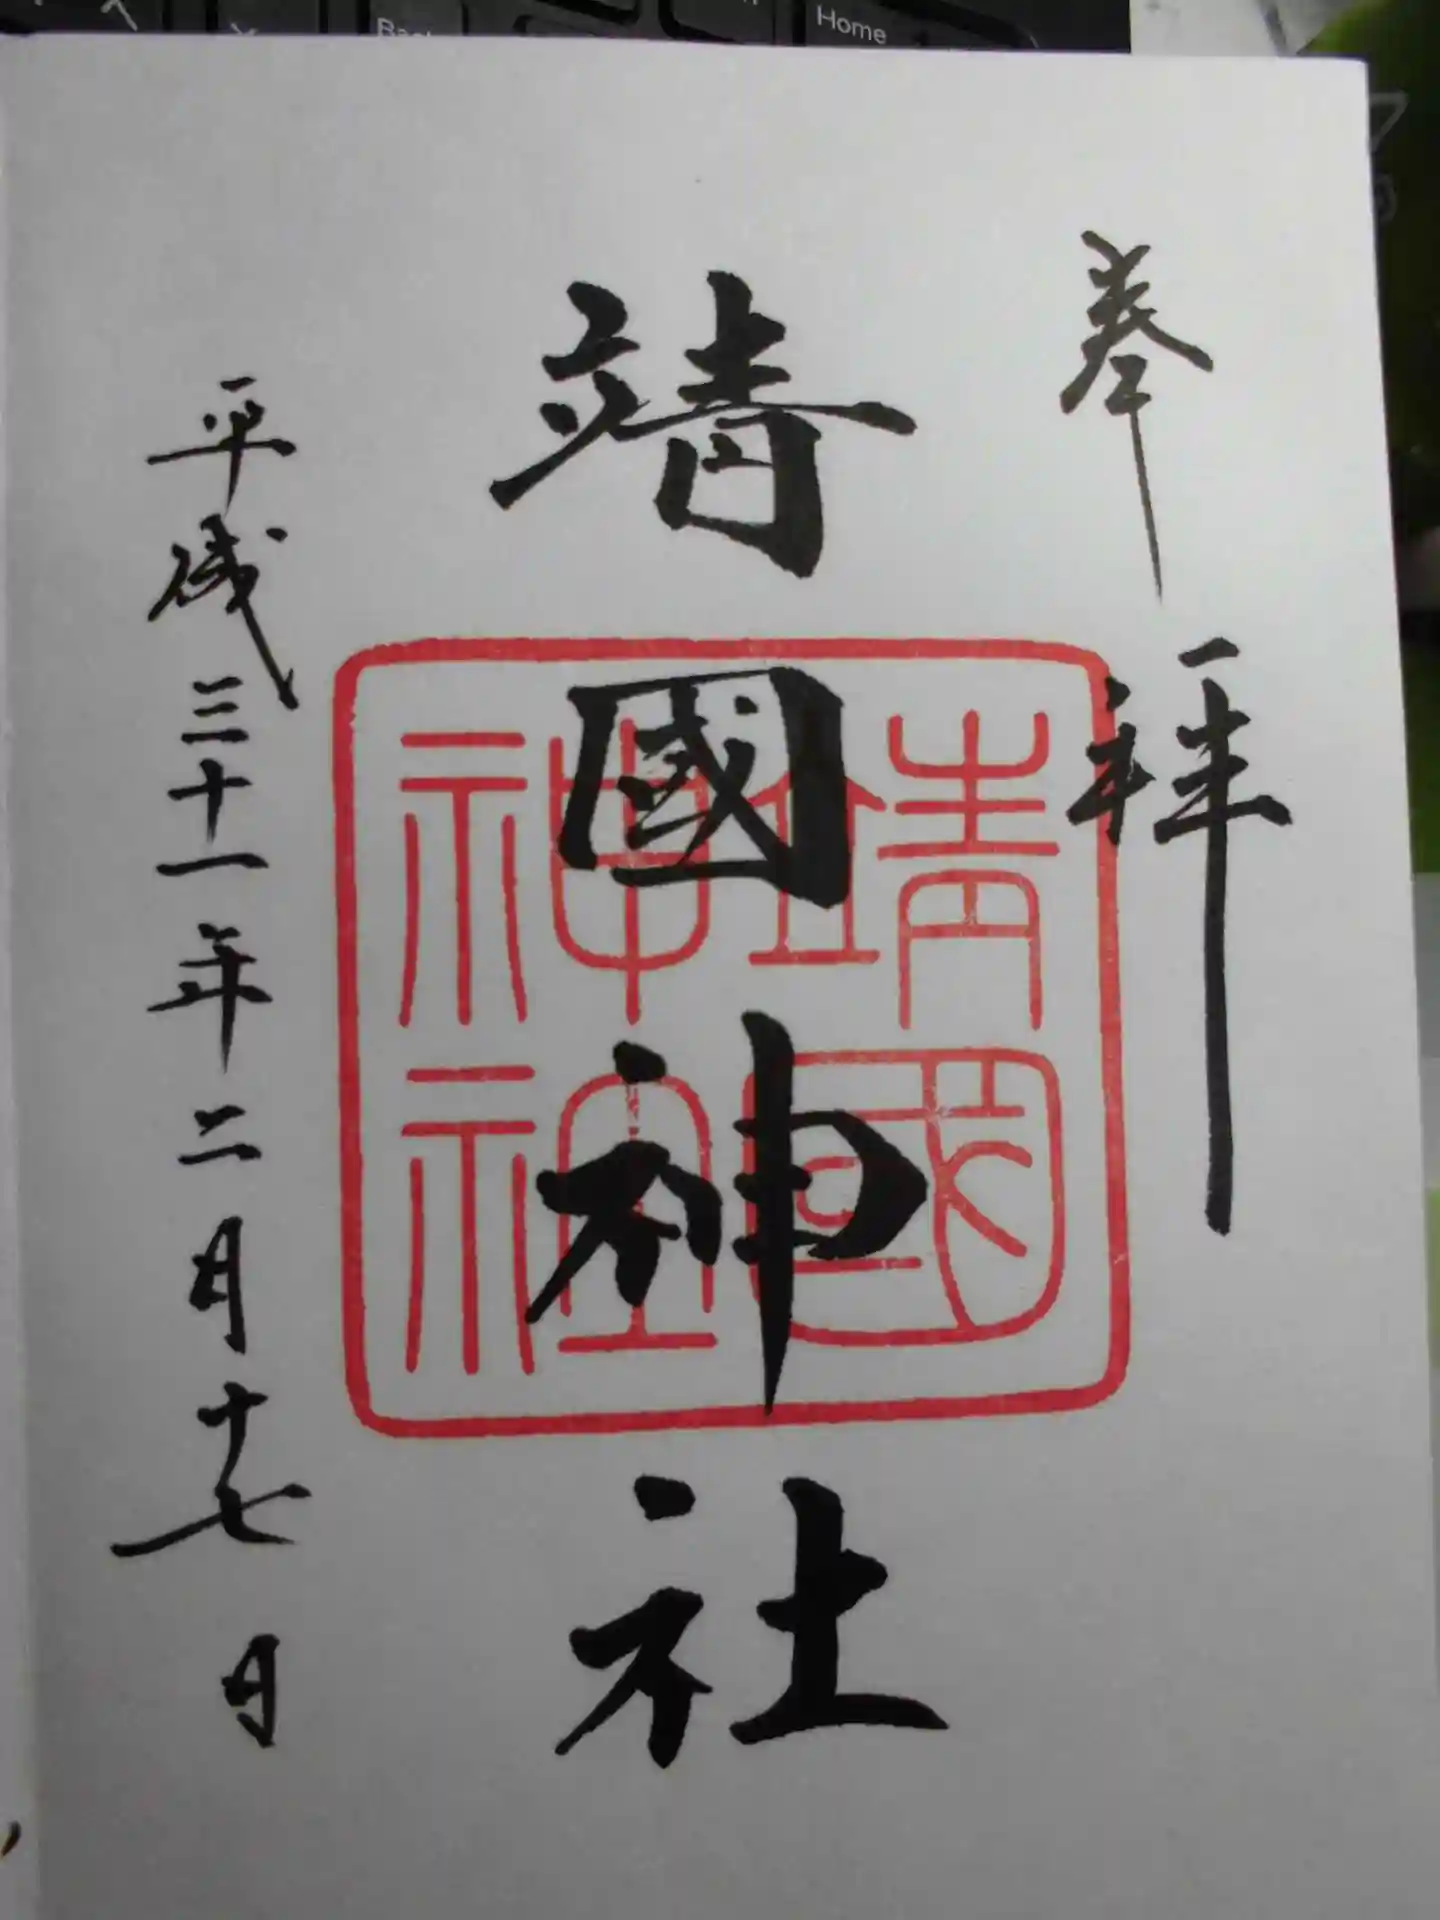 Home
奉拝
靖國神社
靖國神社
平成三十一年二月十七日